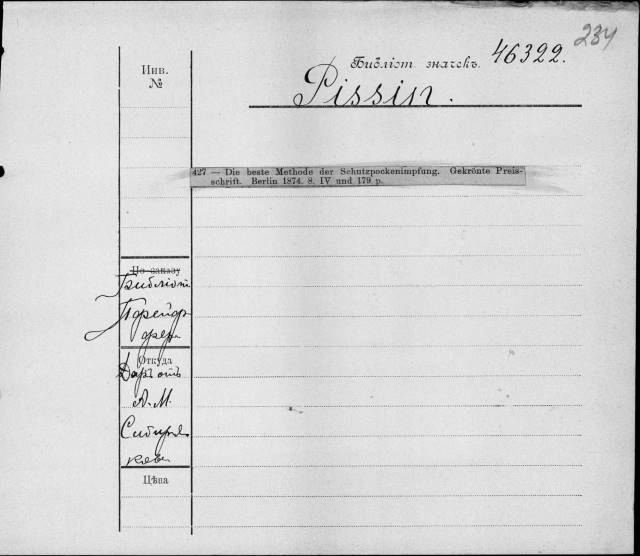 234
Библіот. значекъ. 46322.
Инв.
№
Pissin.
427 — Die beste Methode der Schutzpockenimpfung. Gekrönte Preis-
schrift. Berlin 1874. 8. IV und 179 p.
По заказу
Библіот.
Откуда
Даръ отъ
А. М.
Сибиря-
кова
Цѣна